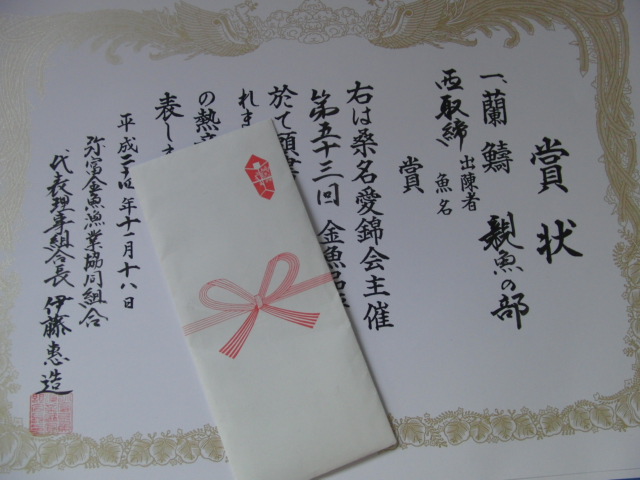 賞状
一、蘭鑄 親魚の部
西取締 出陳者
魚名
賞
右は桑名愛錦会主催
第五十三回 金魚品
於て頭書
れま
の熱意
表しま
平成二十年十二月十八日
弥富金魚漁業協同組合
代表理事組合長 伊藤惠造